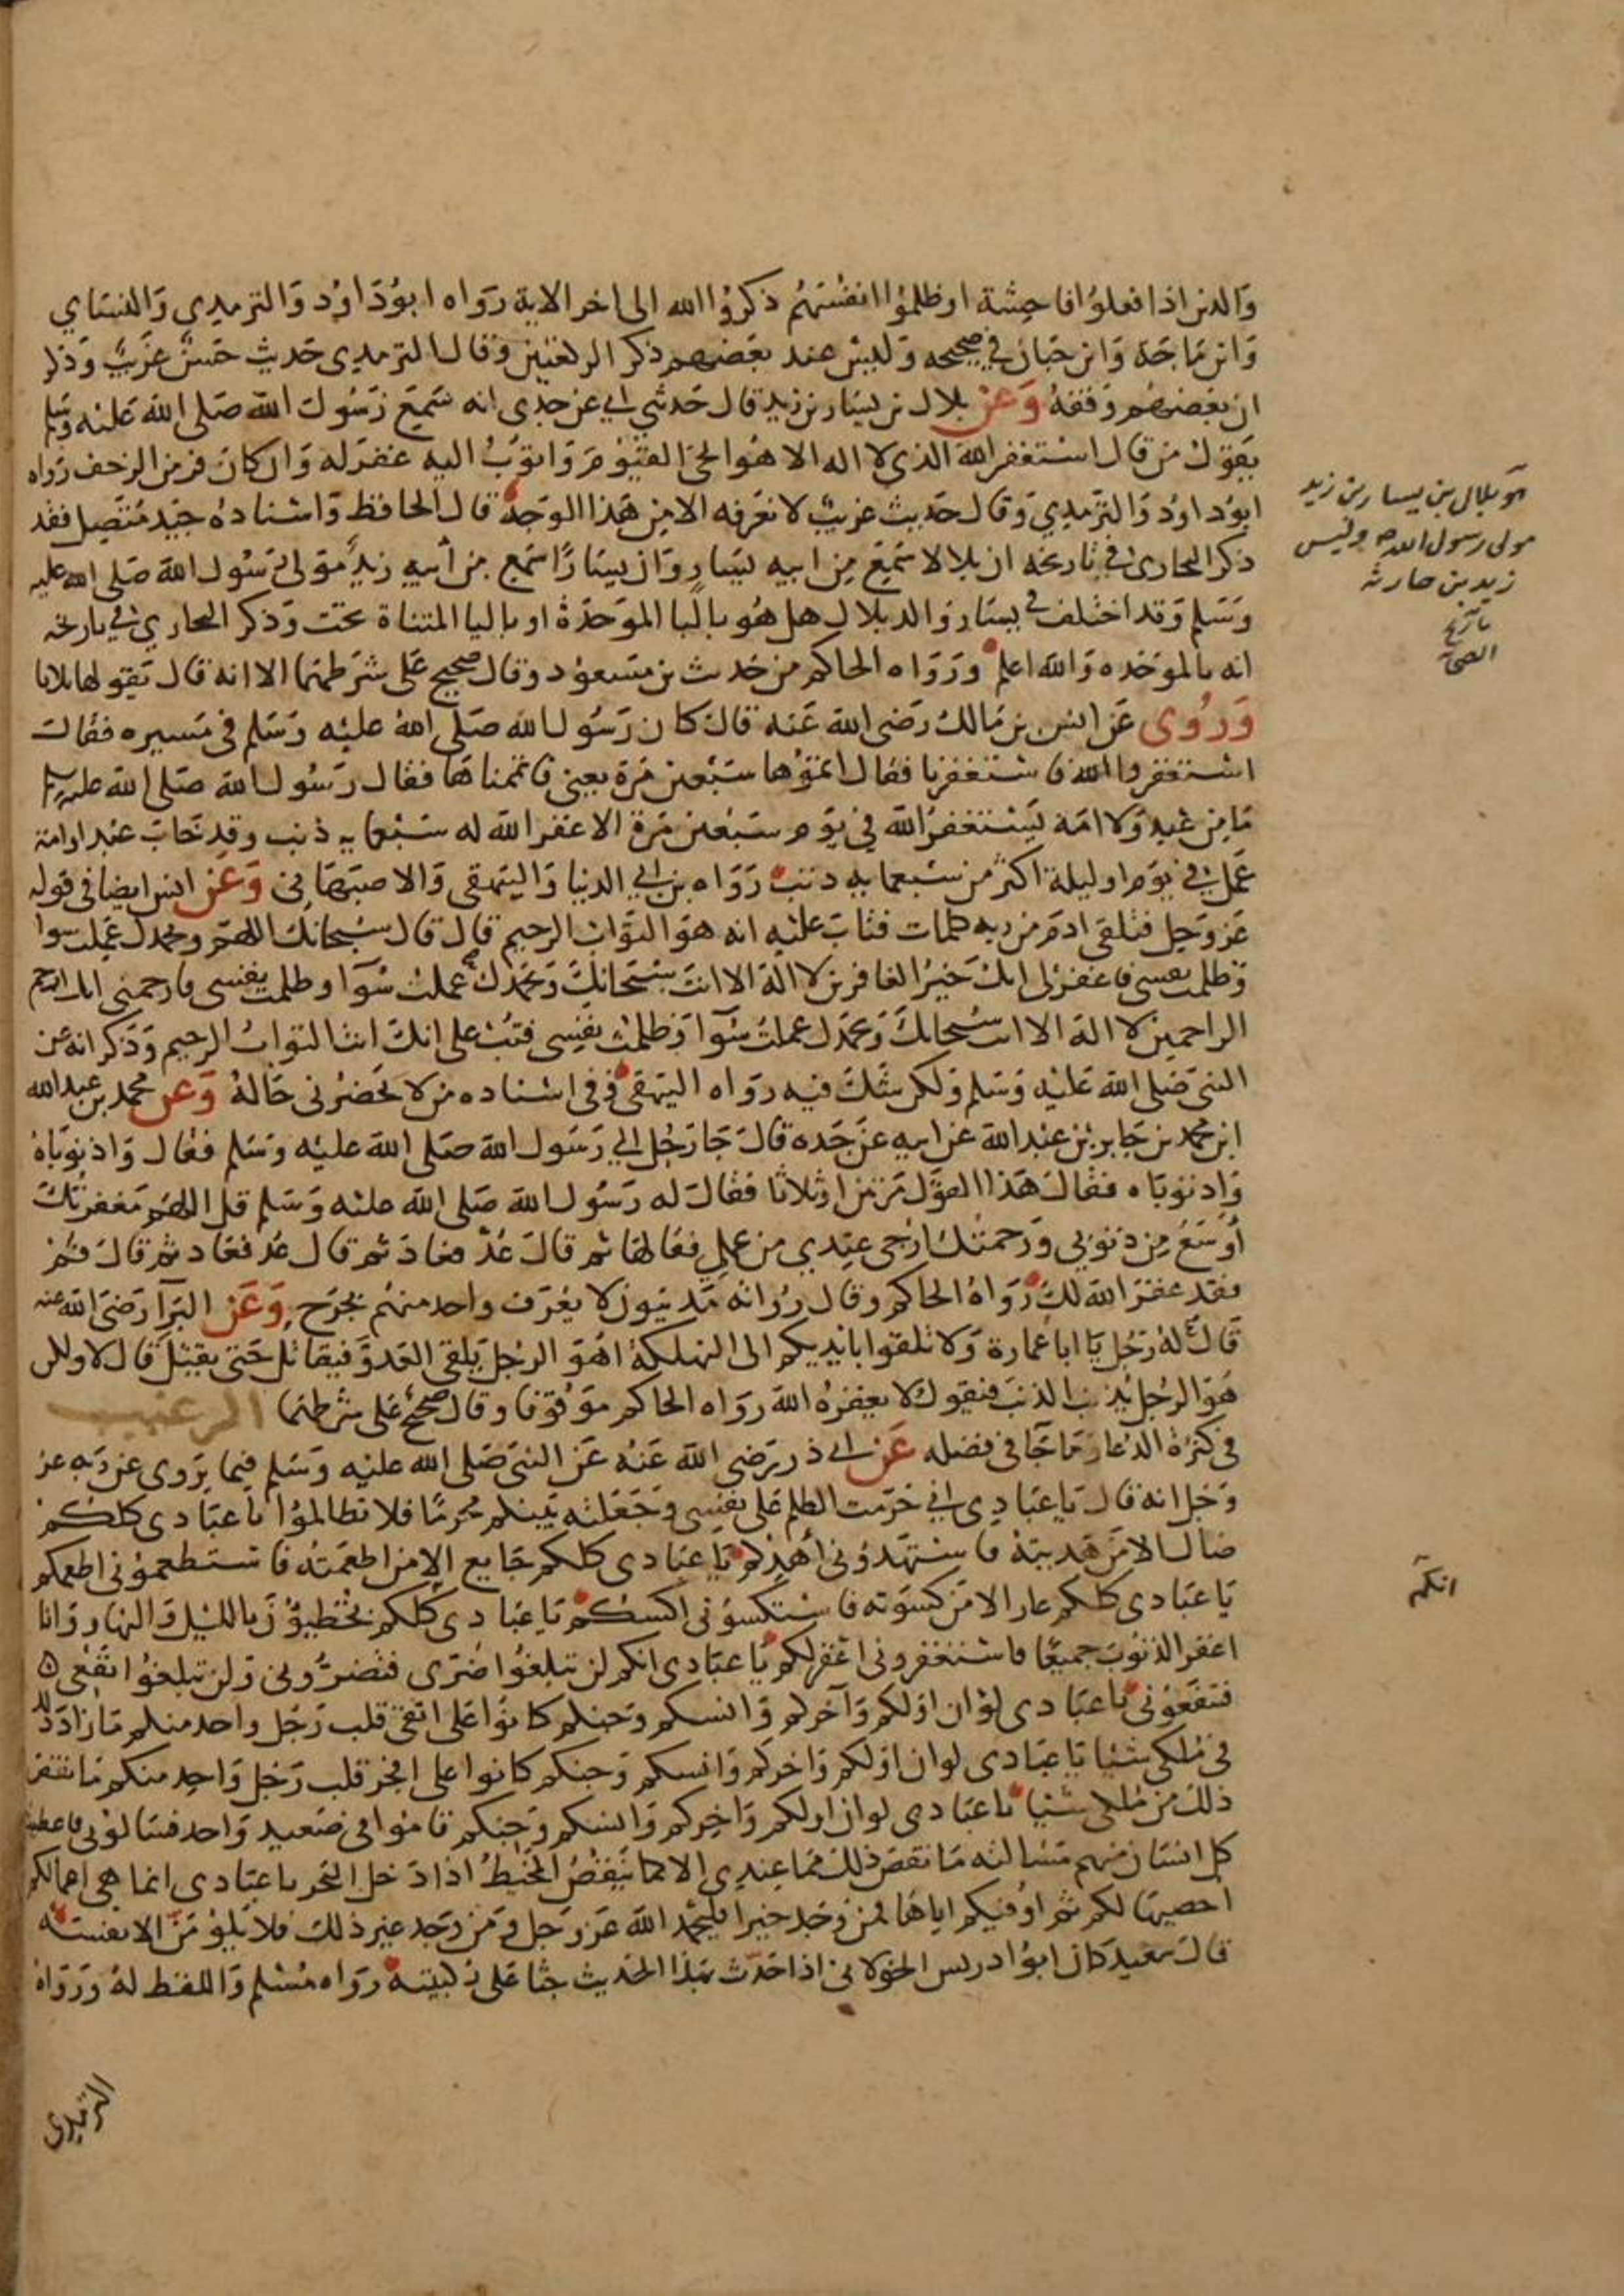 والذين اذا فعلوا فاحشة او ظلموا انفسهم ذكروا الله الى اخر الاية رواه ابو داود والترمذي والنساي
وابن ماجة وابن حبان في صحيحه وليس عند بعضهم ذكر الركعتين وقال الترمذي حديث حسن غريب وذكر
ان بعضهم وقفه وعن بلال بن يسار بن زيد قال حدثني ابي عن جدي انه سمع رسول الله صلى الله عليه وسلم
يقول من قال استغفر الله الذي لا اله الا هو الحي القيوم واتوب اليه غفر له وان كان فر من الزحف رواه
ابو داود والترمذي وقال حديث غريب لا نعرفه الا من هذا الوجه قال الحافظ واسناده جيد متصل فقد
ذكر البخاري في تاريخه ان بلالا سمع من ابيه يسار وان يسارا سمع من ابيه زيد مولى رسول الله صلى الله عليه
وسلم وقد اختلف في يسار والد بلال هل هو بالبا الموحدة او باليا المثناة تحت وذكر البخاري في تاريخه
انه بالموحده والله اعلم ورواه الحاكم من حديث بن مسعود وقال صحيح على شرطهما الا انه قال يقولها ثلاثا
وروى عن انس بن مالك رضى الله عنه قال كان رسول الله صلى الله عليه وسلم في مسيره فقال
استغفروا الله فاستغفرنا فقال اتموها سبعين مرة يعني فاتممناها فقال رسول الله صلى الله عليه وسلم
ما من عبد ولا امة يستغفر الله في يوم سبعين مرة الا غفر الله له سبعماية ذنب وقد خاب عبد او امة
عمل في يوم او ليلة اكثر من سبعماية ذنب رواه بن ابي الدنيا والبيهقي والاصبهاني وعن انس ايضا في قوله
عز وجل فتلقى ادم من ربه كلمات فتاب عليه انه هو التواب الرحيم قال قال سبحانك اللهم وبحمدك عملت سوا
وظلمت نفسي فاغفر لي انك خير الغافرين لا اله الا انت سبحانك وبحمدك عملت سوآ وظلمت نفسي فارحمني انك ارحم
الراحمين لا اله الا انت سبحانك وبحمدك عملت سوآ وظلمت نفسي فتب علي انك انت التواب الرحيم وذكر انه عن
النبي صلى الله عليه وسلم ولكن شك فيه رواه البيهقي وفي اسناده من لا يحضرني حاله وعن محمد بن عبد الله
ابن محمد بن جابر بن عبد الله عن ابيه عن جده قال جا رجل الي رسول الله صلى الله عليه وسلم فقال واذنوباه
واذنوباه فقال هذا القول مرتين او ثلاثا فقال له رسول الله صلى الله عليه وسلم قل اللهم مغفرتك
أوسع من ذنوبي ورحمتك ارجى عندي من عملي فقالها ثم قال عد فعاد ثم قال عد فعاد ثم قال قم
فقد غفر الله لك رواه الحاكم وقال رواته مدنيون لا يعرف واحد منهم بجرح وعن البرآ رضى الله عنه
قال له رجل يا ابا عمارة ولا تلقوا بايديكم الى التهلكة اهو الرجل يلقى العدو فيقاتل حتى يقتل قال لا ولكن
هو الرجل يذنب الذنب فيقول لا يغفره الله رواه الحاكم موقوفا وقال صحيح على شرطهما الترغيب
في كثرة الدعا وما جا في فضله عن ابي ذر رضي الله عنه عن النبي صلى الله عليه وسلم فيما يروى عن ربه عز
وجل انه قال يا عبادي اني حرمت الظلم على نفسي وجعلته بينكم محرما فلا تظالموا يا عبادي كلكم
ضال الا من هديته فاستهدوني أهدكم يا عبادى كلكم جايع الا من اطعمته فاستطعموني اطعمكم
يا عبادى كلكم عار الا من كسوته فاستكسوني اكسكم يا عبادي كلكم تخطيون بالليل والنهار وانا
اغفر الذنوب جميعا فاستغفروني اغفر لكم يا عبادي انكم لن تبلغوا ضرى فتضروني ولن تبلغوا نفعى
فتنفعوني يا عبادي لو ان اولكم وآخركم وانسكم وجنكم كانوا على اتقى قلب رجل واحد منكم ما زاد ذلك
في ملكي شيئا يا عبادى لو ان اولكم واخركم وانسكم وجنكم كانوا على افجر قلب رجل واحد منكم ما نقص
ذلك من ملكي شيئا يا عبادى لو ان اولكم واخركم وانسكم وجنكم قاموا في صعيد واحد فسالوني فاعطيت
كل انسان منهم مسالته ما نقص ذلك مما عندي الا كما ينقص المخيط اذا دخل البحر يا عبادي انما هي اعمالكم
احصيها لكم ثم اوفيكم اياها فمن وجد خيرا فليحمد الله عز وجل ومن وجد غير ذلك فلا يلومن الا نفسه
قال سعيد كان ابو ادريس الخولاني اذا حدث بهذا الحديث جثا على ركبتيه رواه مسلم واللفظ له ورواه
الترمذي
هو بلال بن يسار بن زيد
مولى رسول الله ص وليس
زيد بن حارثة
تاريخ
انكم